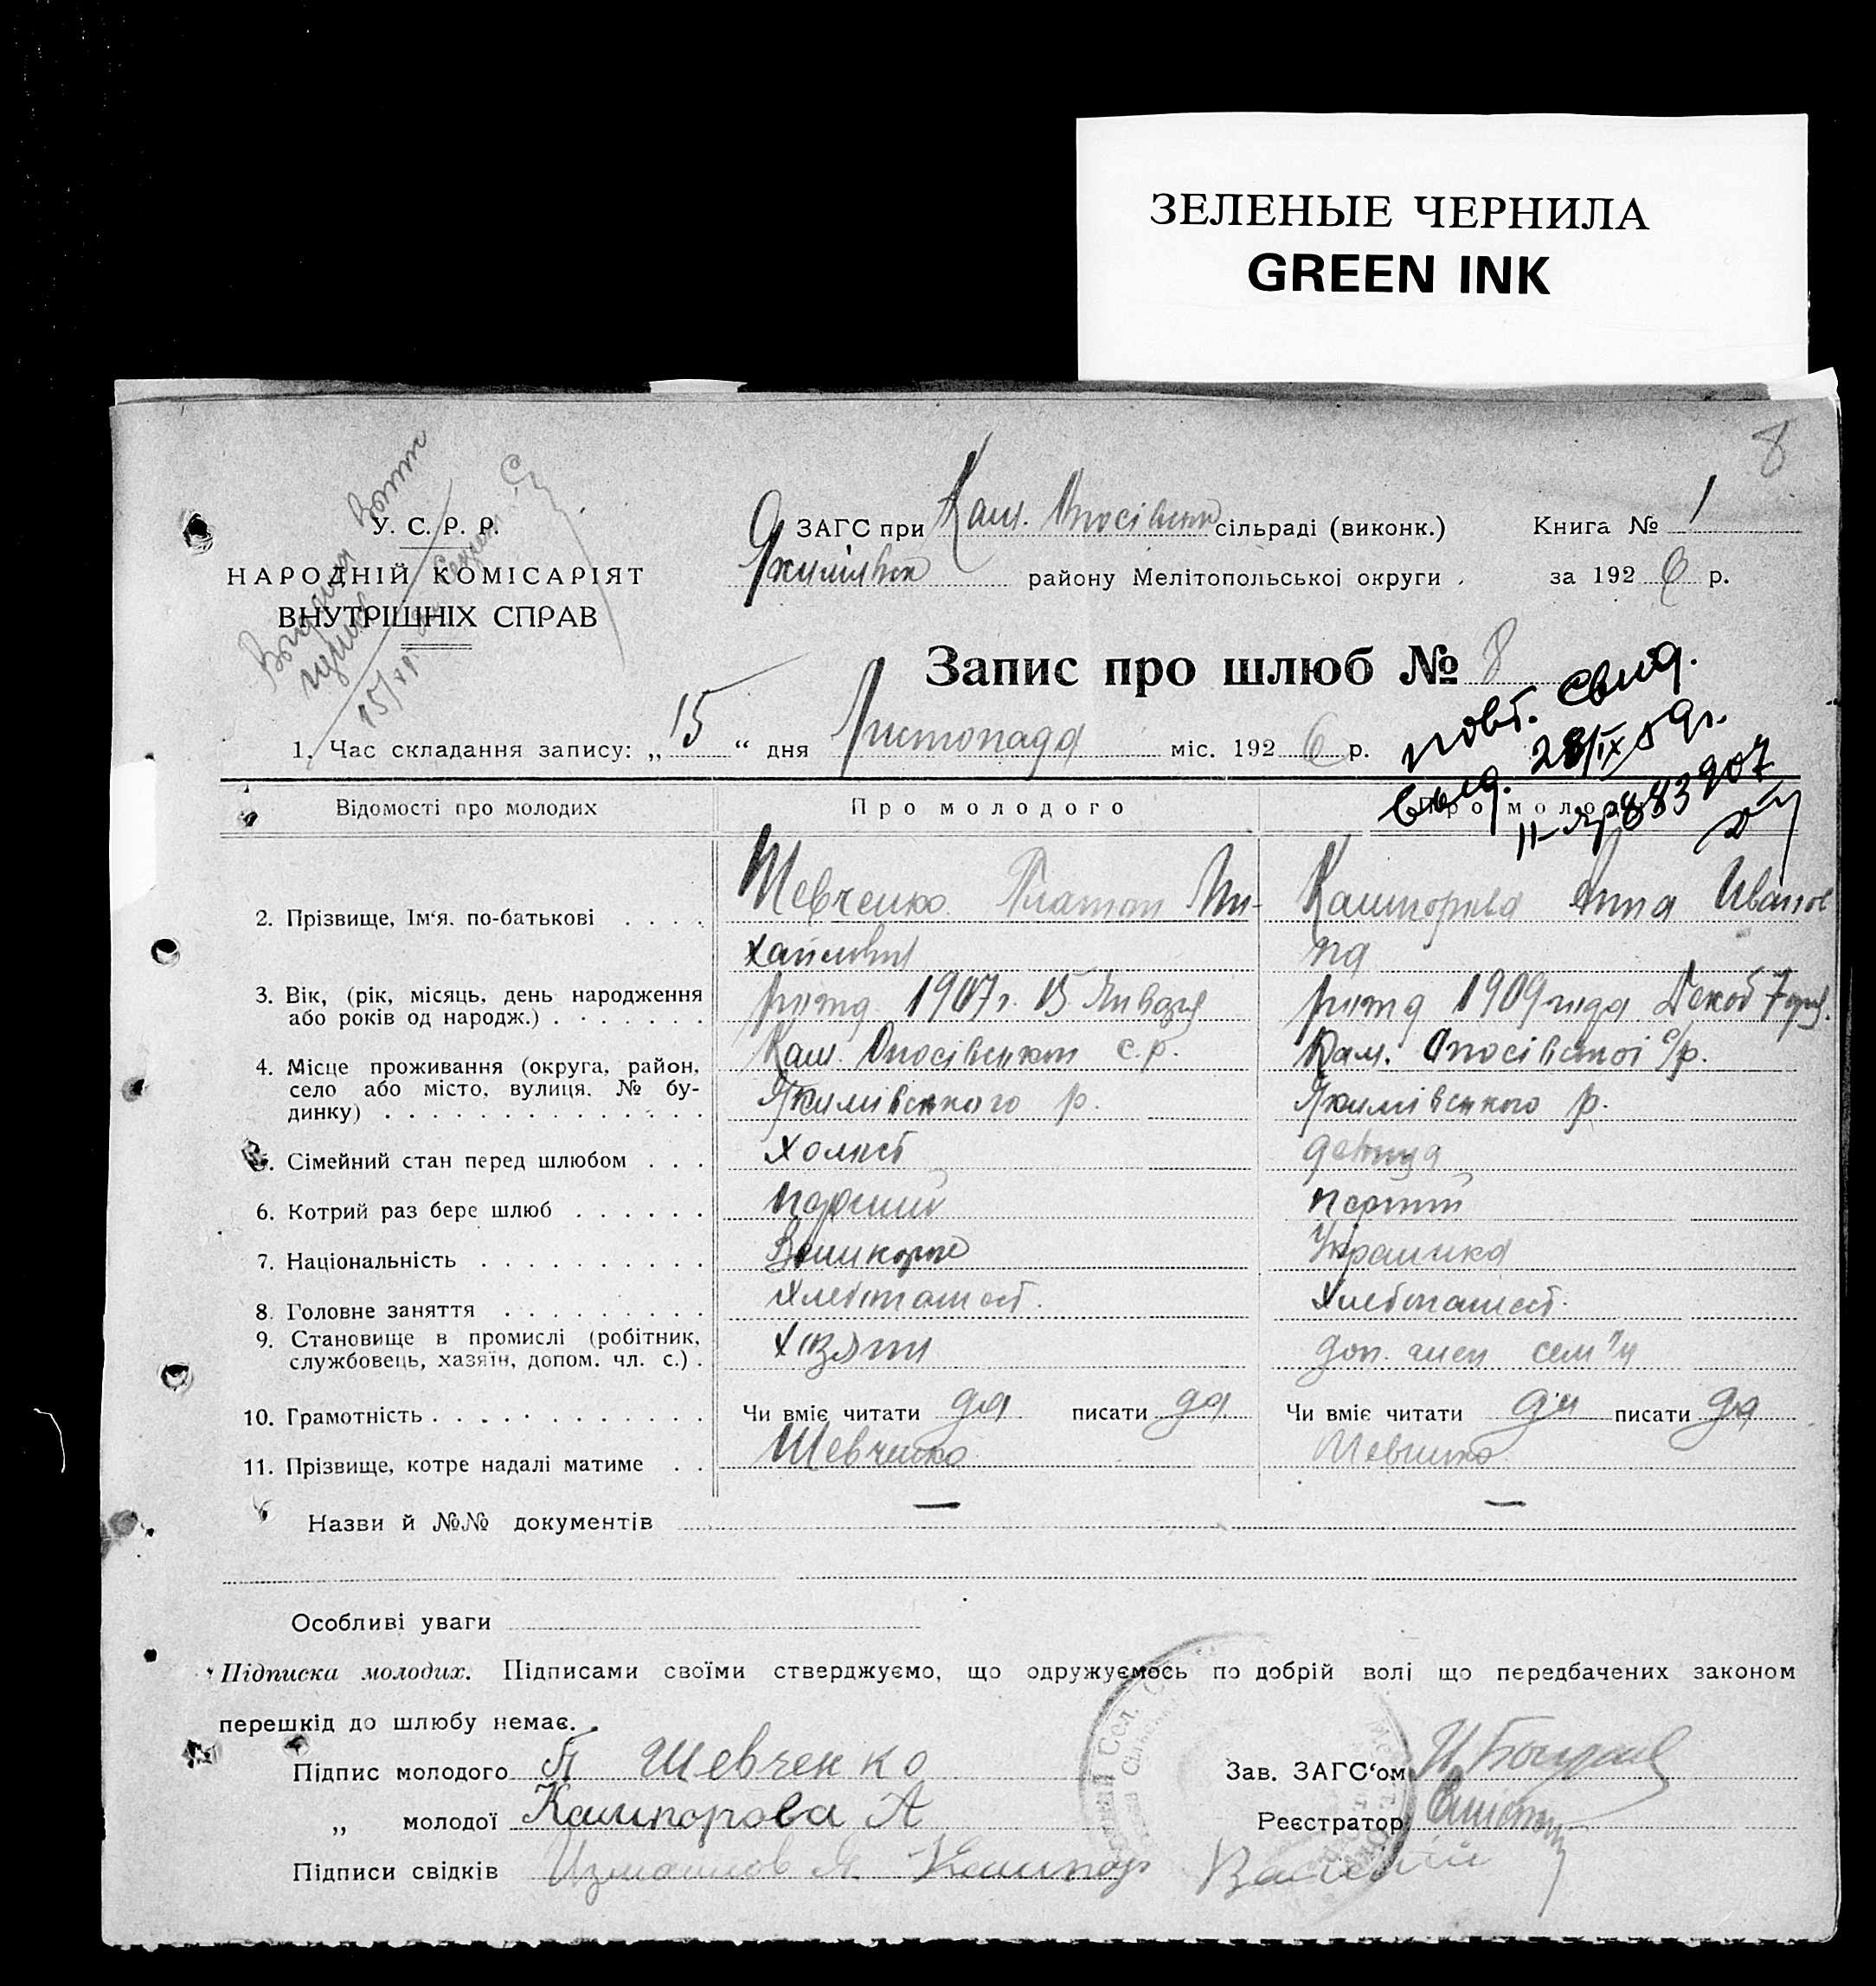 ЗЕЛЕНЫЕ ЧЕРНИЛА
GREEN INK
8
У. С. Р. Р.
НАРОДНІЙ КОМІСАРІЯТ
ВНУТРІШНІХ СПРАВ
15/XI
ЗАГС при Кам. сільраді (виконк.) Книга № 1
району Мелітопольської округи. за 1926 р.
Запис про шлюб № 8
повт. свид.
28/IX 59г.
свид.
II-ЯР 883907
1. Час складання запису: „15“ дня Листопада міс. 1926 р.
Відомості про молодих Про молодого
2. Прізвище, Ім'я. по-батькові . . . . Шевченко Платон Ми- Кашпорова Анна Иванов
хайлович на
3. Вік, (рік, місяць, день народження
або років од народж.) . . . . . . 1907г. 15 Января 1909 года Декаб 7 дня.
4. Місце проживання (округа, район,
село або місто, вулиця. № бу-
динку) . . . . . . . . . . . . . .
Кам. с.р. Кам. с/р.
Якимівського р. Якимівського р.
5. Сімейний стан перед шлюбом . . . холост девица
6. Котрий раз бере шлюб . . . . . . первий первий
7. Національність . . . . . . . . . . Великорос Украинка
8. Головне заняття . . . . . . . . . Хлебопашест. Хлебопашест.
9. Становище в промислі (робітник,
службовець, хазяїн, допом. чл. с.) . доп. член сем'и
10. Грамотність . . . . . . . . . . . Чи вміє читати да писати да Чи вміє читати да писати да
11. Прізвище, котре надалі матиме . . Шевченко Шевченко
Назви й №№ документів — —
Особливі уваги
Підписка молодих. Підписами своїми стверджуємо, що одружуємось по добрій волі що передбачених законом
перешкід до шлюбу немає.
Підпис молодого П Шевченко Зав. ЗАГС'ом
„ молодої Кашпорова А Реєстратор
Підписи свідків Измаилов Я. Кашпор Василий